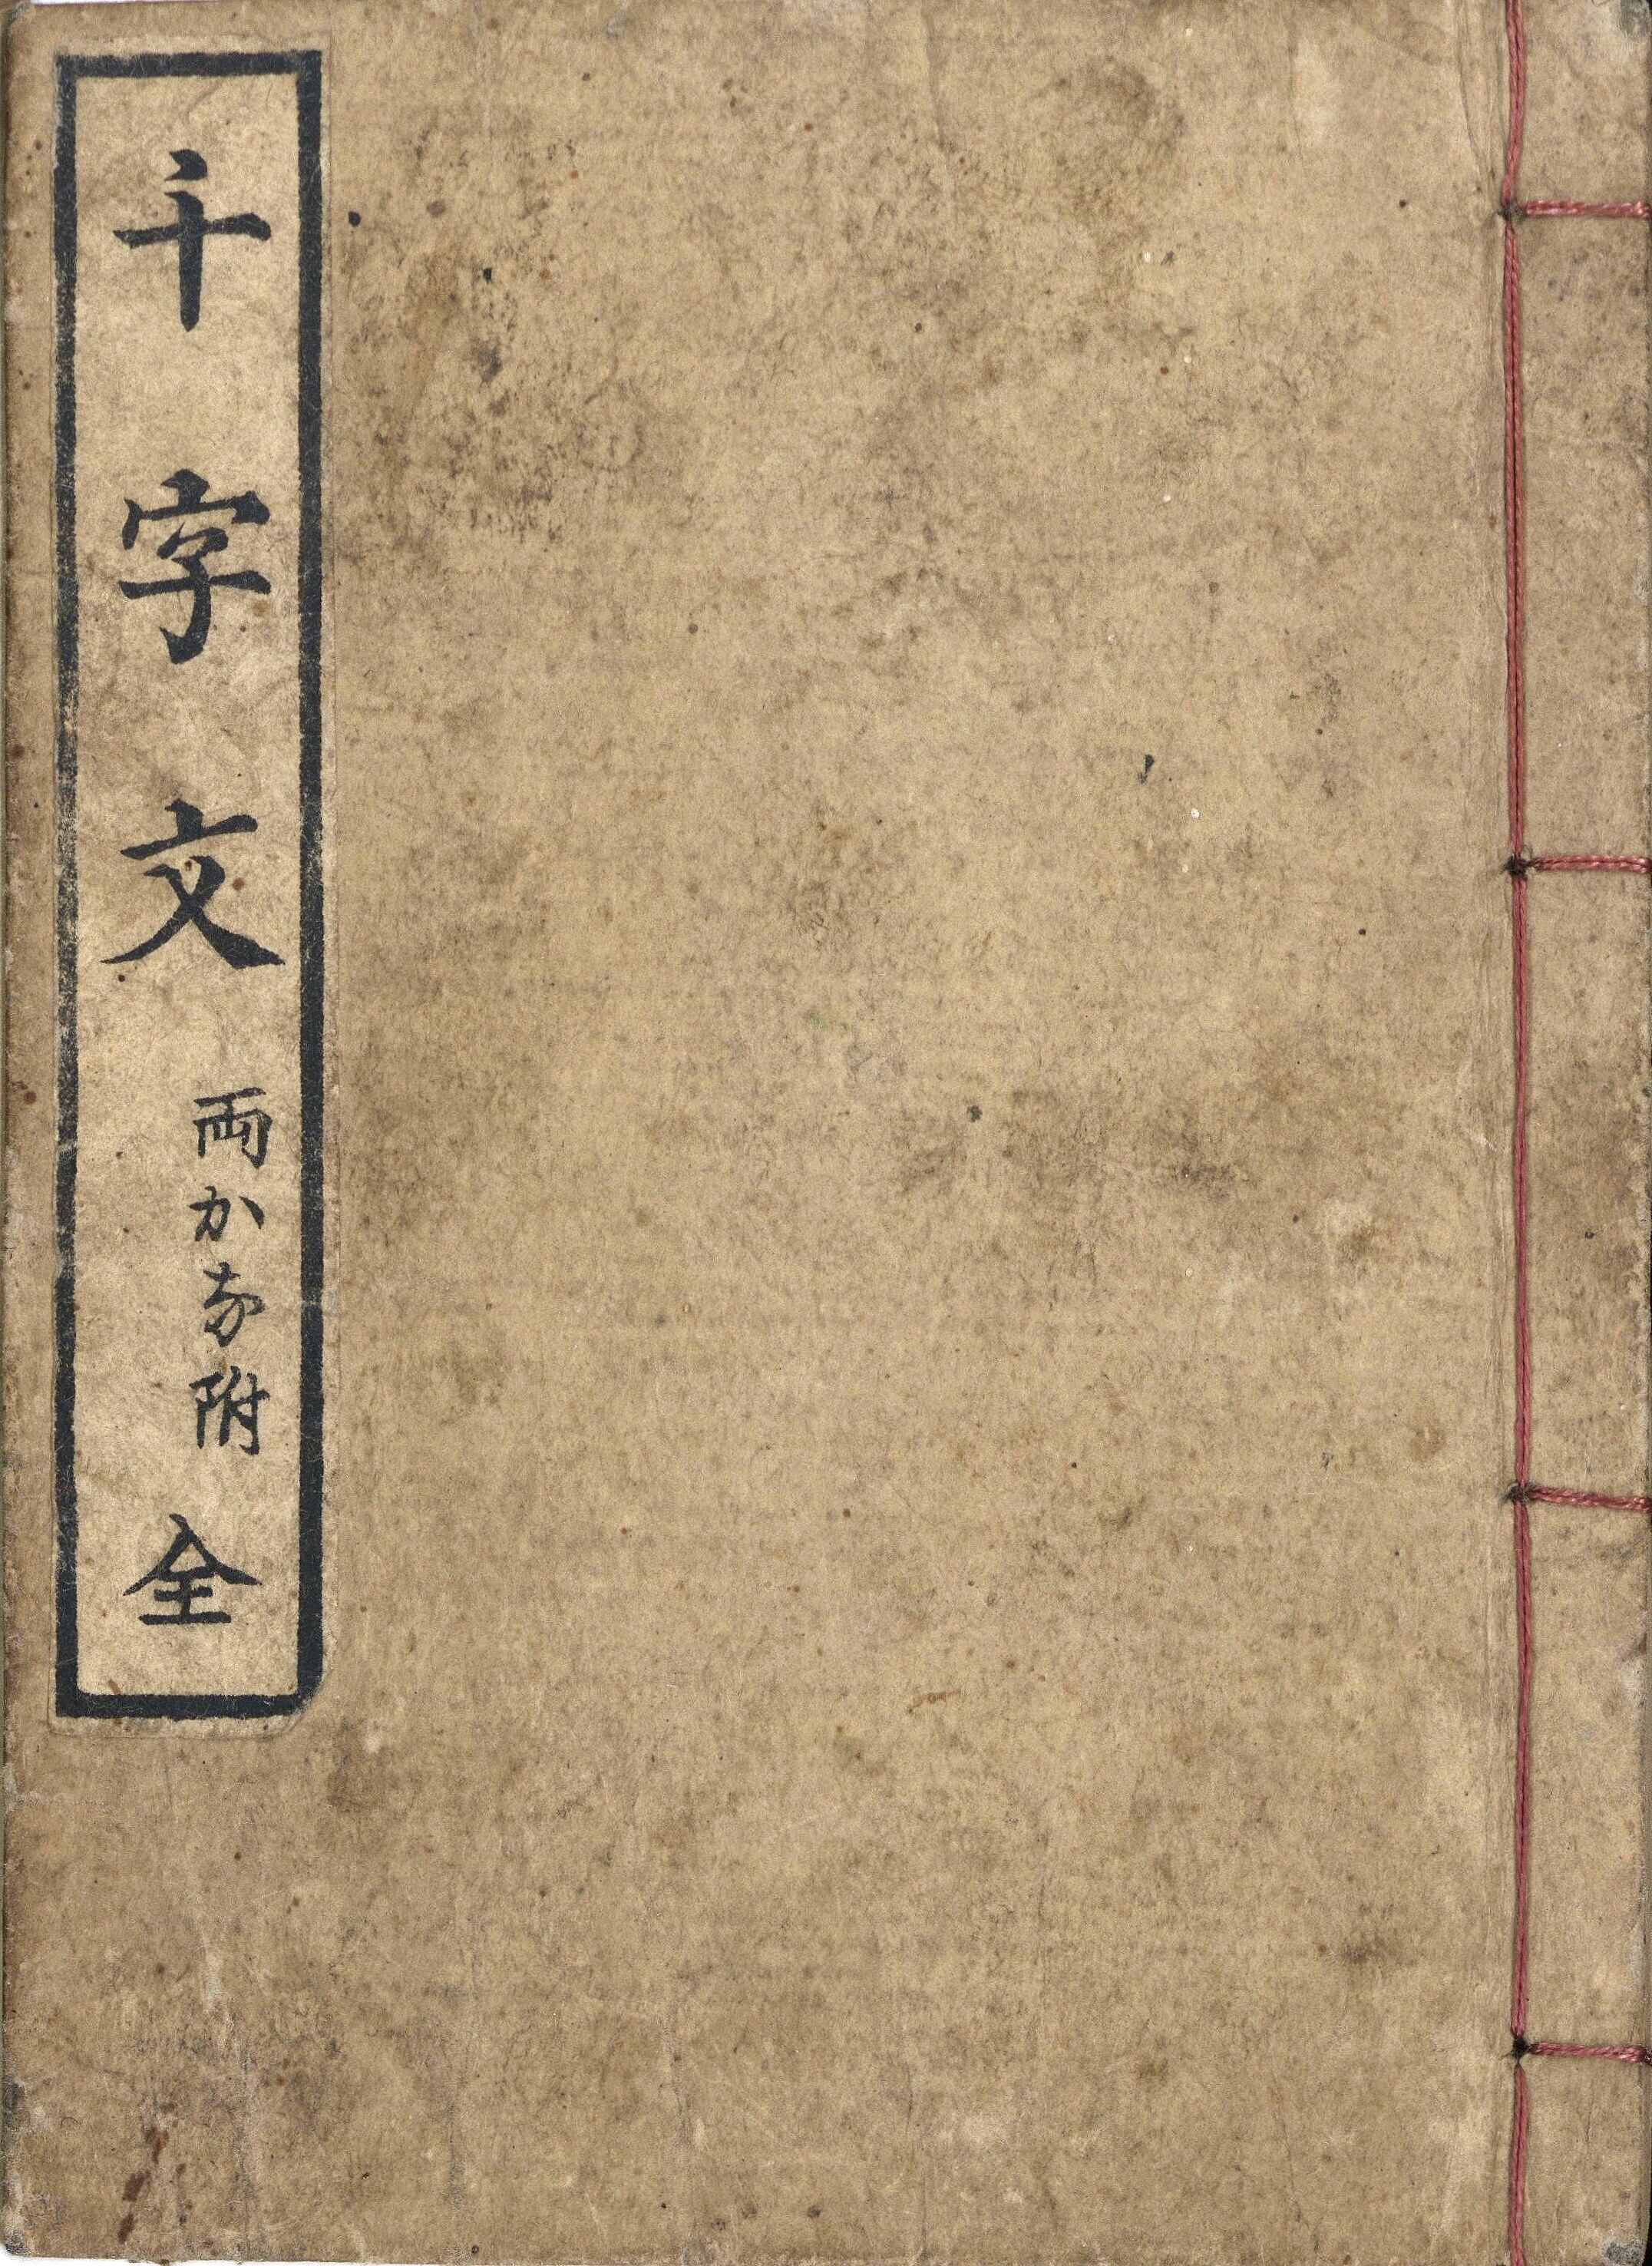 千字文
両かな附
全